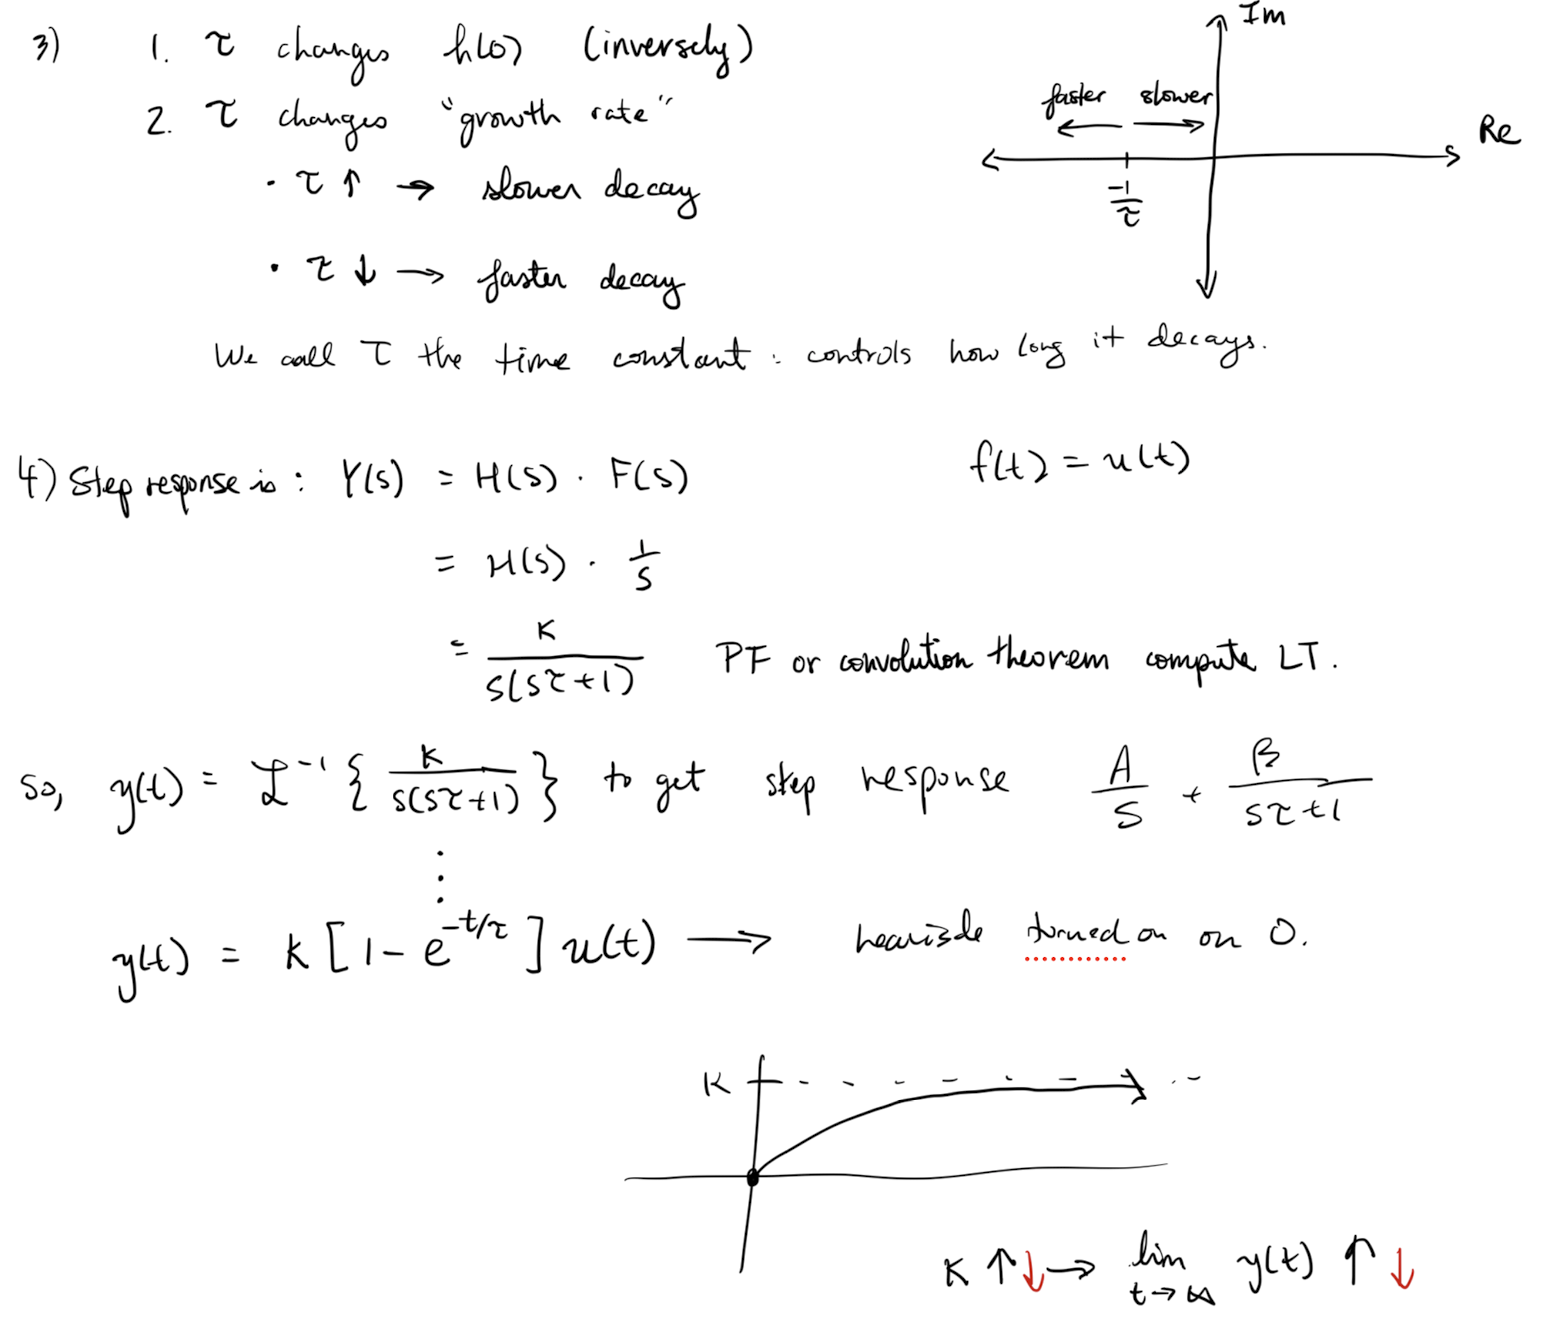 3) 1. τ changes h(0) (inversely)
2. τ changes "growth rate"
· τ ↑ → slower decay
· τ ↓ → faster decay
We call τ the time constant : controls how long it decays.
Im
faster slower
Re
-1/τ
4) Step response is : Y(s) = H(s) · F(s) f(t) = u(t)
= H(s) · 1/s
= K/(s(sτ+1)) PF or convolution theorem compute LT.
So, y(t) = ℒ⁻¹ { K/(s(sτ+1)) } to get step response A/s + B/(sτ+1)
⋮
y(t) = K [1 - e^(-t/τ)] u(t) → heaviside turned on on 0.
K
K ↑↓ → lim t→∞ y(t) ↑ ↓